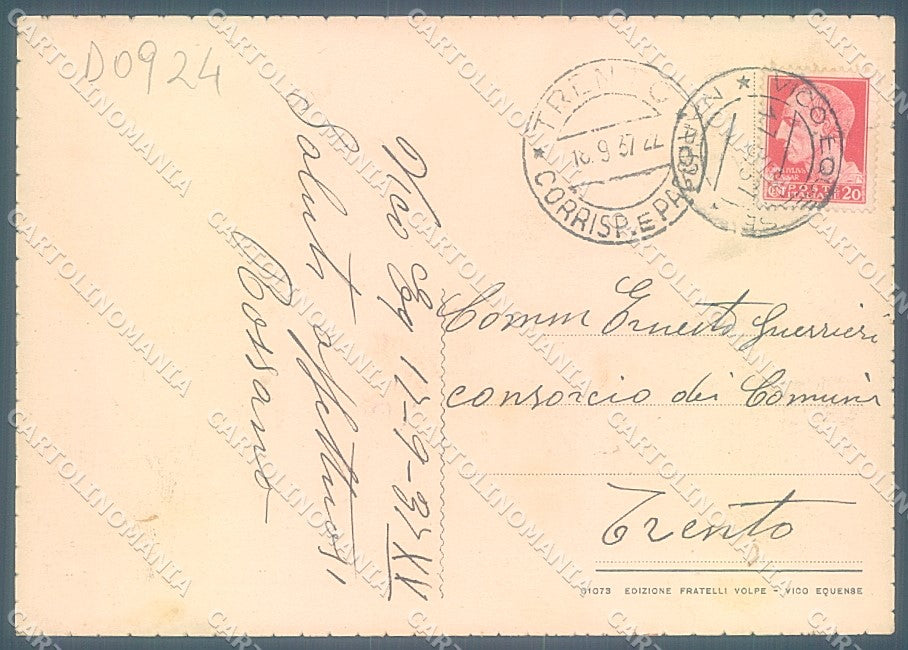 D0924
Vico Eq. 17-9-37 XV
Saluti affettuosi
Rossano
TRENTO
18.9.37.22
CORRISP. E PA
VICO EQU
NSE
POSTE
CENT 20
Comm Ernesto Guerrieri
consorcio dei Comuni
Trento
61073 EDIZIONE FRATELLI VOLPE - VICO EQUENSE
CARTOLINOMANIA